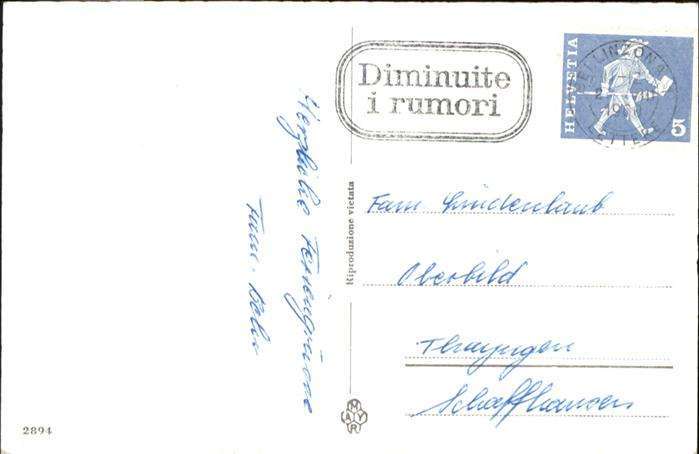 Herzliche Feriengrüsse
Fam.
Diminuite
i rumori
BELLINZONA
LETTERE
HELVETIA
5
Riproduzione vietata
Fam Lindenlaub
Oberbild
Thayngen
Schaffhausen
MAYR
2894